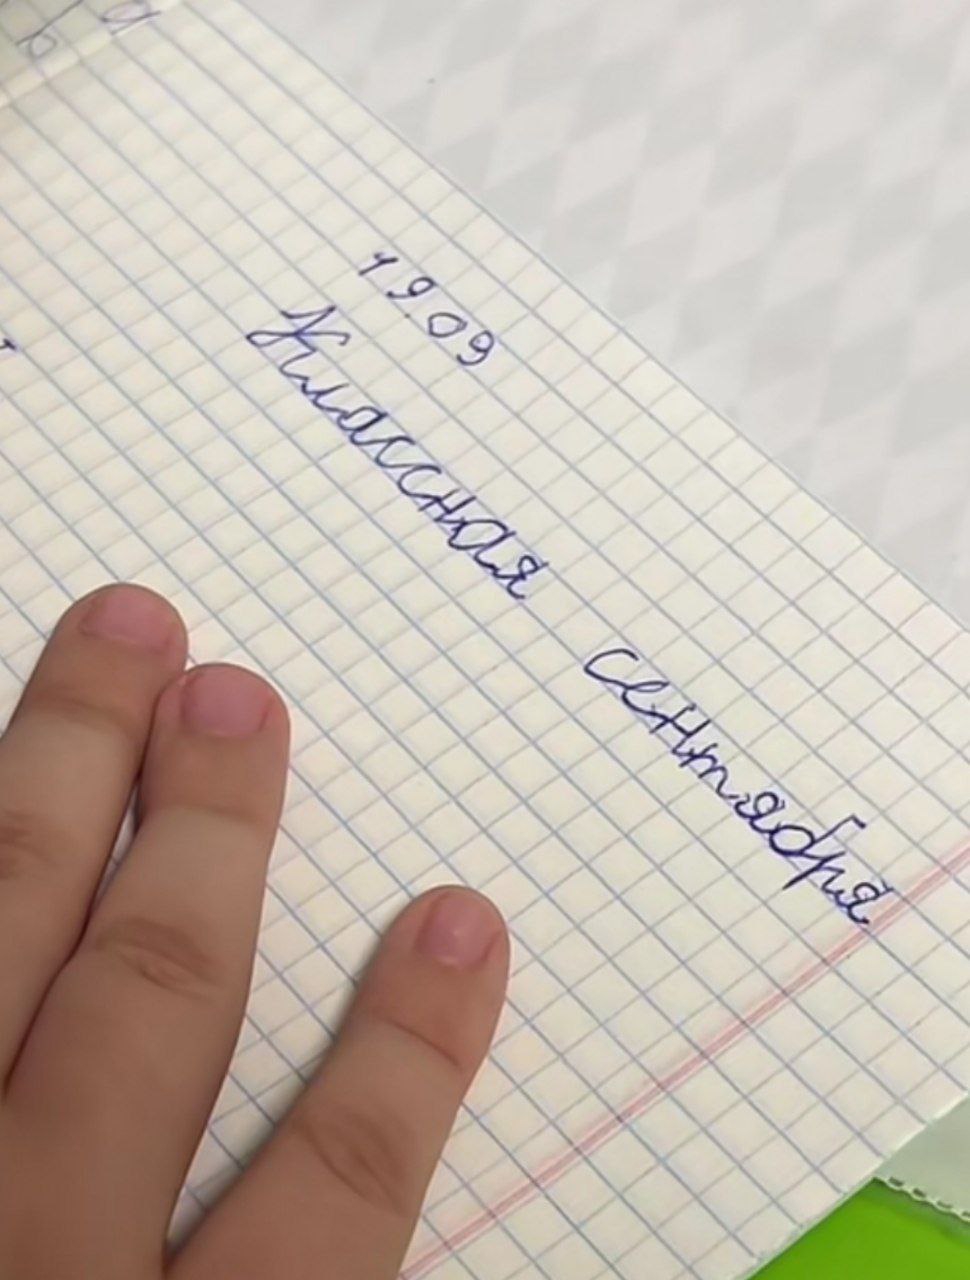 19.09
Классная сентября